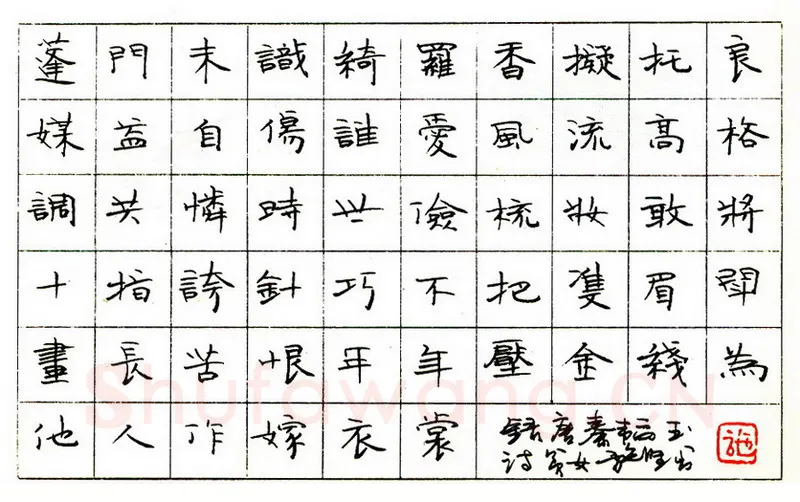 蓬門未識綺羅香擬托良
媒益自傷誰愛風流高格
調共憐時世儉梳妝敢將
十指誇針巧不把雙眉鬥
畫長苦恨年年壓金綫為
他人作嫁衣裳
錄唐秦韜玉
詩貧女
Shufawang.CN